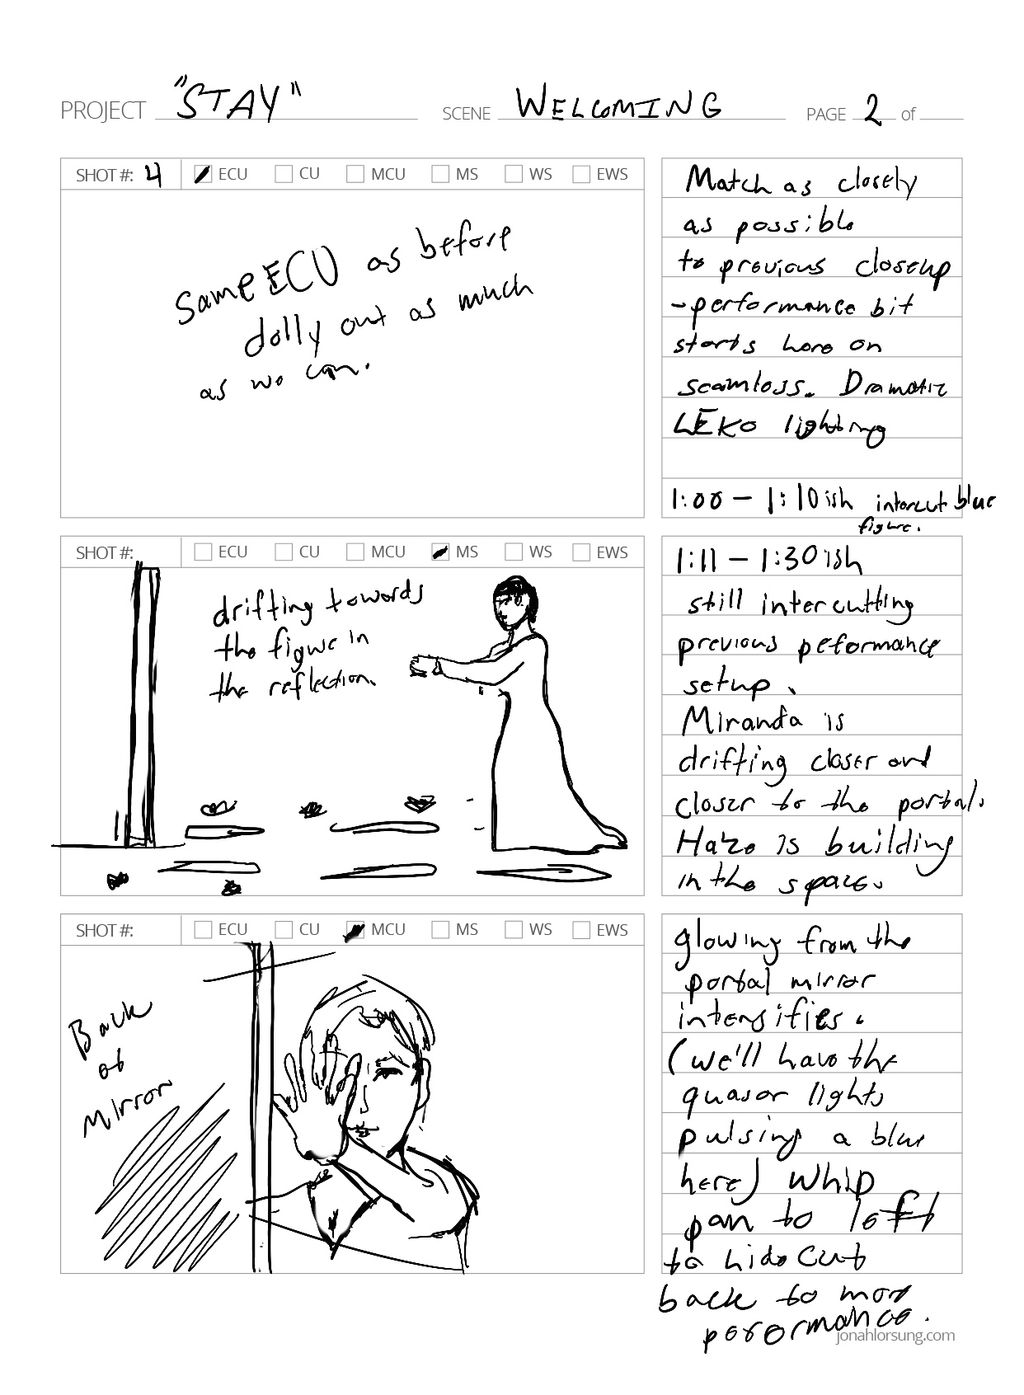 PROJECT "STAY" SCENE WELCOMING PAGE 2 of
SHOT #: 4 ECU CU MCU MS WS EWS
Same ECU as before
dolly out as much
as we can.
Match as closely
as possible
to previous closeup
-performance bit
starts here on
seamless. Dramatic
LEKO lighting
1:00 - 1:10ish intercut blue
figure.
SHOT #: ECU CU MCU MS WS EWS
drifting towards
the figure in
the reflection.
1:11 - 1:30ish
still intercutting
previous peformance
setup.
Miranda is
drifting closer and
closer to the portal.
Haze is building
in the space.
SHOT #: ECU CU MCU MS WS EWS
Back
of
mirror
glowing from the
portal mirror
intensifies.
(we'll have the
quasar lights
pulsing a blue
here) Whip
pan to left
to hide cut
back to more
jonahlorsung.com